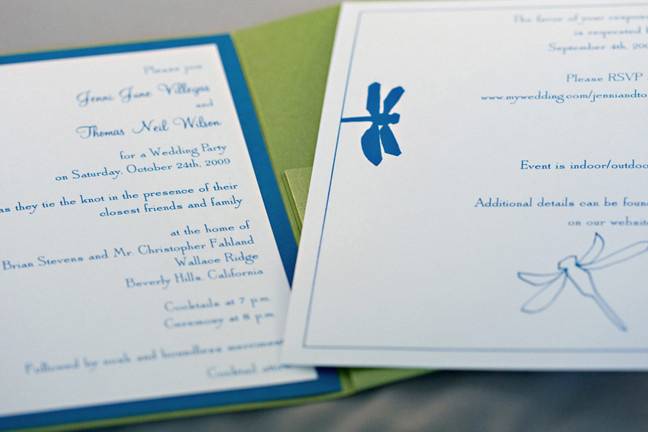 Please join
Jenni Jane Villegas
and
Thomas Neil Wilson
for a Wedding Party
on Saturday, October 24th, 2009
as they tie the knot in the presence of their
closest friends and family
at the home of
Brian Stevens and Mr. Christopher Fahland
Wallace Ridge
Beverly Hills, California
Cocktails at 7 p.m.
Ceremony at 8 p.m.
Followed by nosh and boundless
Cocktail
The favor of your
is requested
September 4th, 200
Please RSVP
www.mywedding.com/jenniandto
Event is indoor/outdoo
Additional details can be foun
on our website